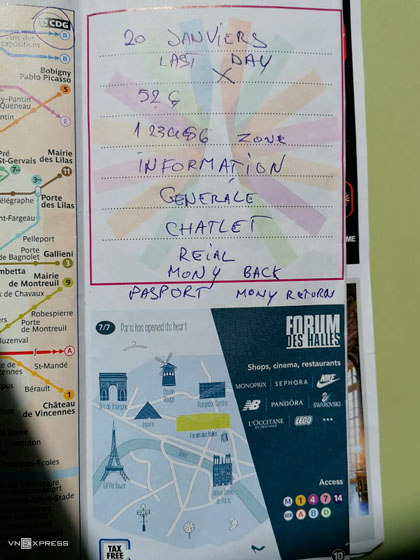 CDG
B
B
Bobigny
Pablo Picasso
5
Pantin
Queneau
E
Pré
St-Gervais
Mairie
des Lilas
11
Télégraphe
Porte
des Lilas
t-Fargeau
Pelleport
Porte
de Bagnolet
Gallieni
3
Gambetta
Mairie
de Montreuil
9
x de Chavaux
Robespierre
Porte
de Montreuil
A
St-Mandé
Bérault
1
Château
de Vincennes
20 JANVIERS
LAST DAY
X
52 €
123456 ZONE
INFORMATION
GENERALE
CHATLET
REIAL
MONY BACK
PASPORT MONY RETORN
7/7
Paris has opened its heart
FORUM
DES HALLES
Shops, cinema, restaurants
MONOPRIX SEPHORA NIKE
NB PANDORA SWAROVSKI
L'OCCITANE
EN PROVENCE
LEGO
•••
Arc de Triomphe
Moulin
Rouge
Pompidou Centre
Louvre
Forum des Halles
Eiffel Tower
Notre Dame
de Paris
Access
M 1 4 7 14
RER A B D
TAX
FREE
10
ME
VNEXPRESS